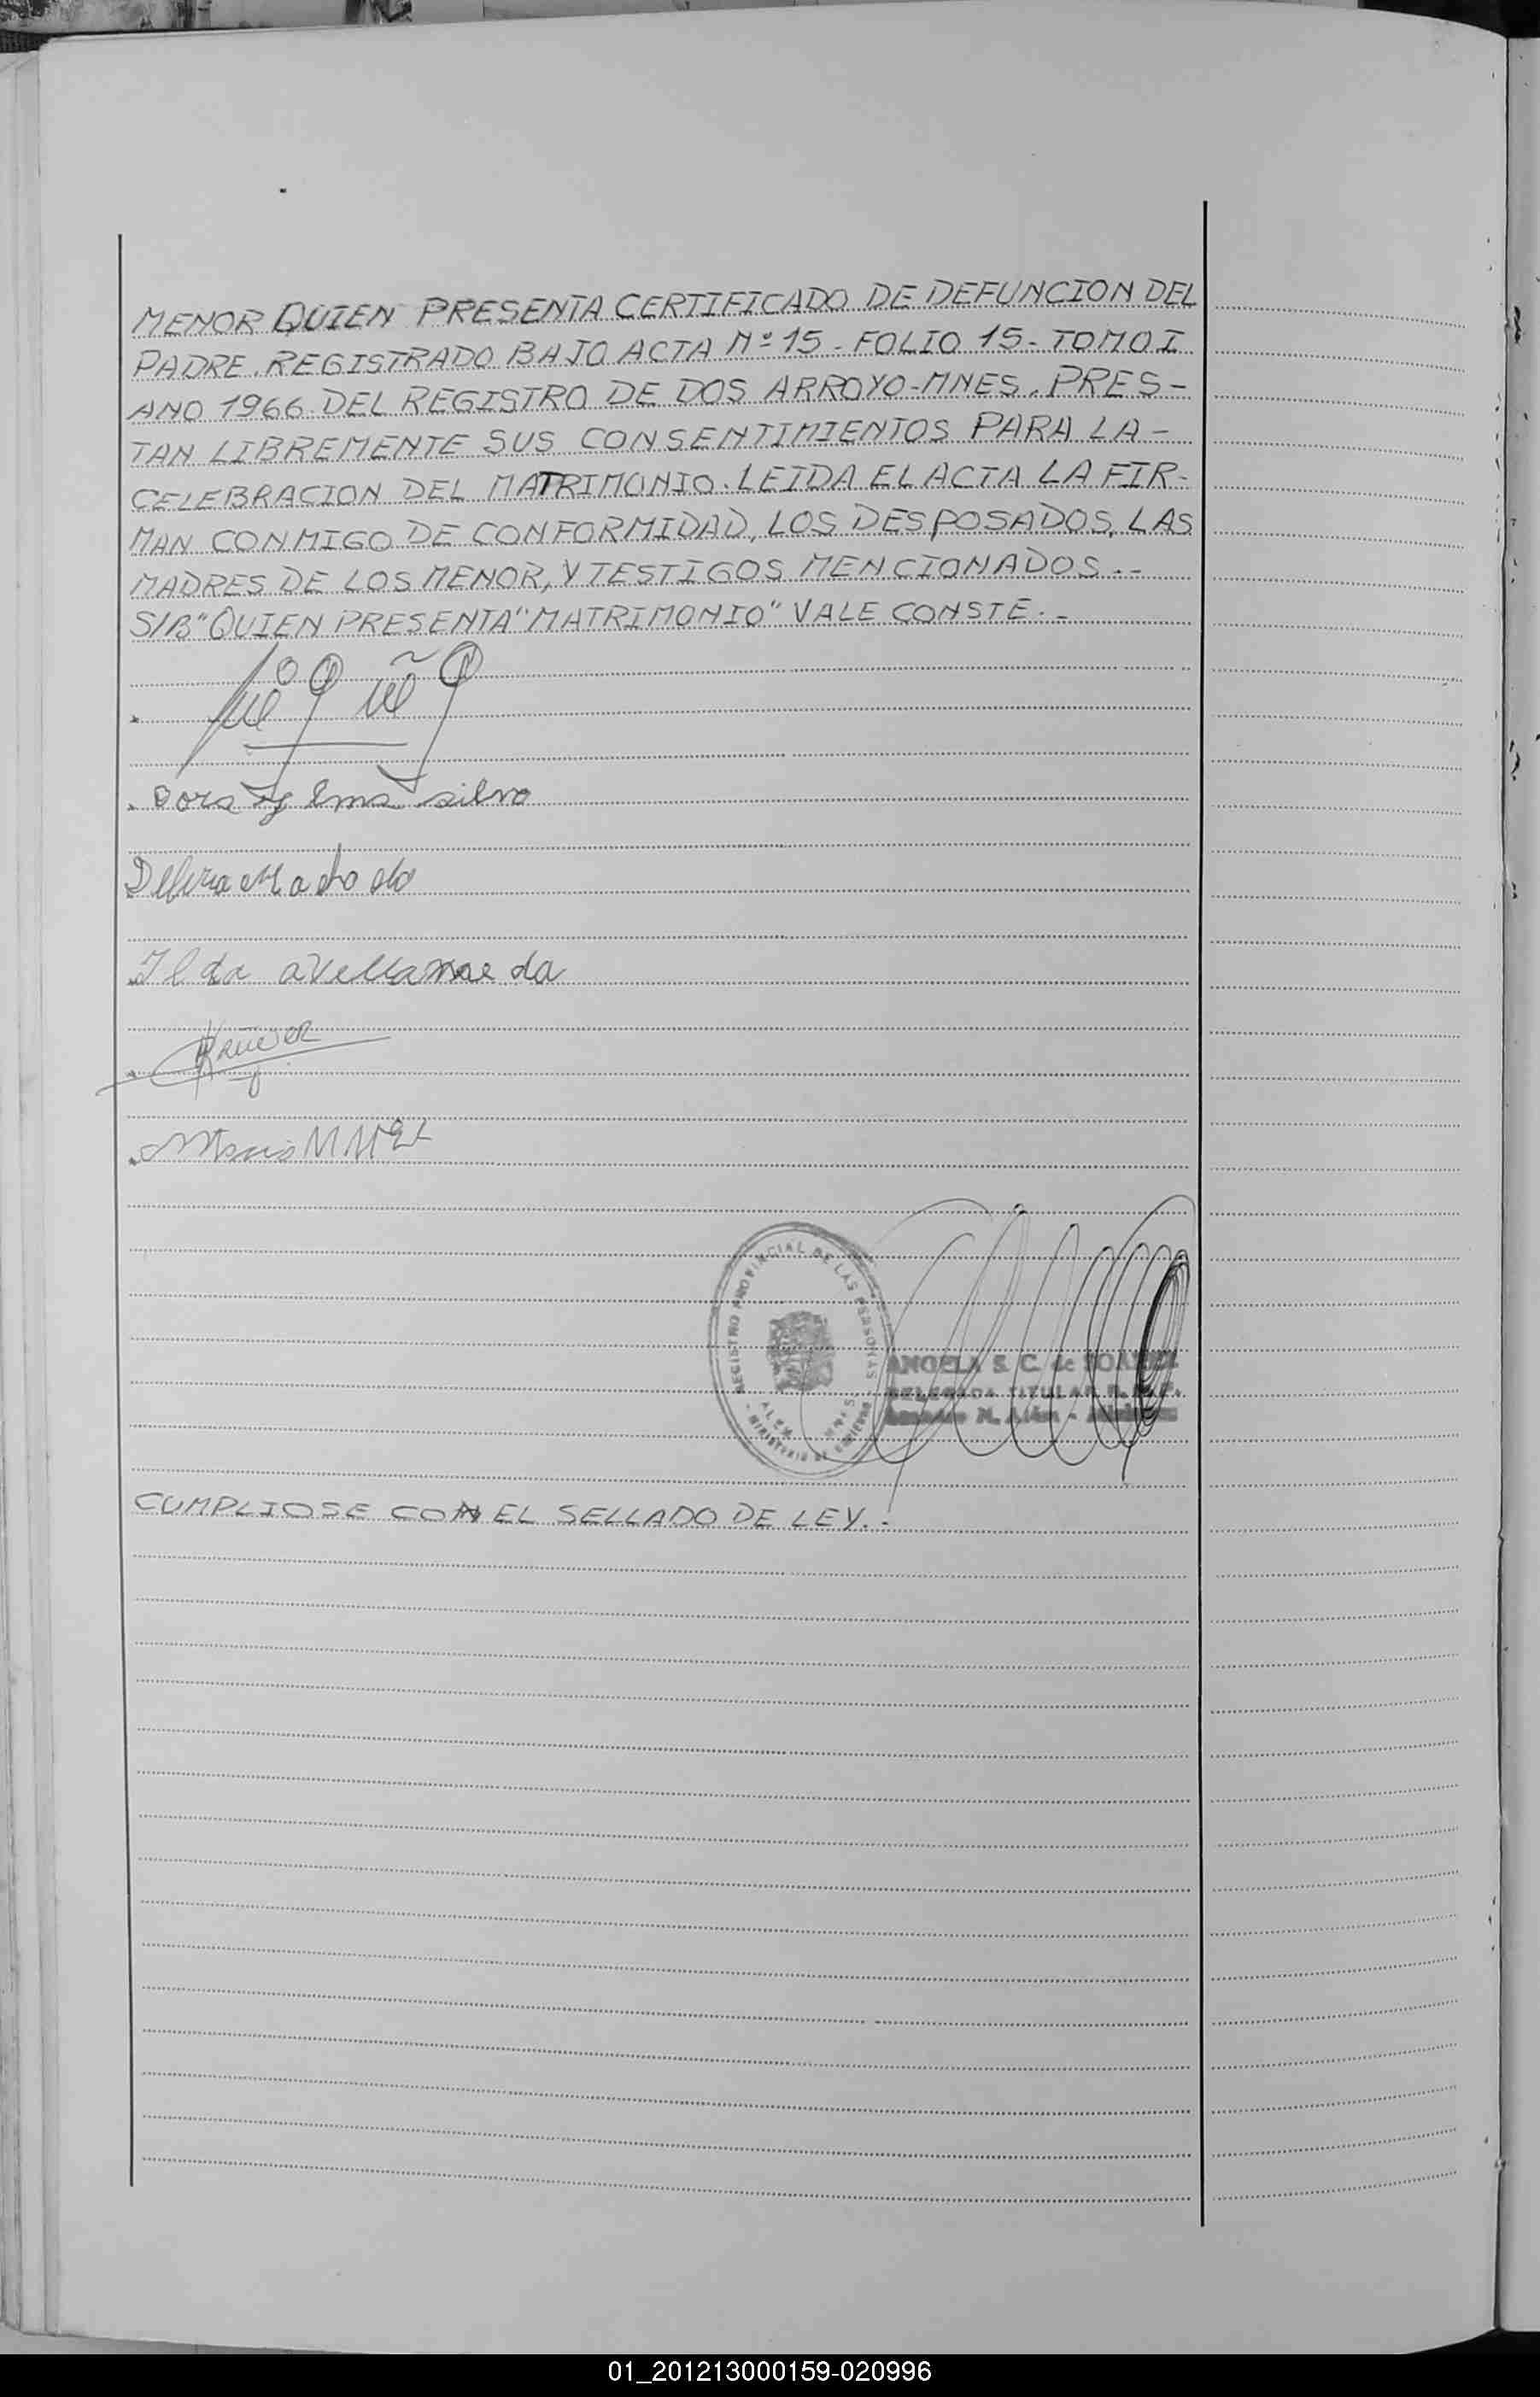 MENOR QUIEN PRESENTA CERTIFICADO DE DEFUNCION DEL
PADRE. REGISTRADO BAJO ACTA Nº 15 - FOLIO 15 - TOMO I
ANO 1966 DEL REGISTRO DE DOS ARROYO-MNES. PRES-
TAN LIBREMENTE SUS CONSENTIMIENTOS PARA LA -
CELEBRACION DEL MATRIMONIO. LEIDA EL ACTA LA FIR-
MAN CONMIGO DE CONFORMIDAD, LOS DESPOSADOS, LAS
MADRES DE LOS MENOR, Y TESTIGOS MENCIONADOS.--
S/B "QUIEN PRESENTA" "MATRIMONIO" VALE CONSTE.-
silva
Machado
Ilda avellaneda
REGISTRO PROVINCIAL DE LAS PERSONAS
ALEM MNES
- MINISTERIO DE GOBIERNO -
ANGELA S. C. de
DELEGADA TITULAR R. P. P.
N. Alem - Misiones
CUMPLIOSE CON EL SELLADO DE LEY.-
01_201213000159-020996